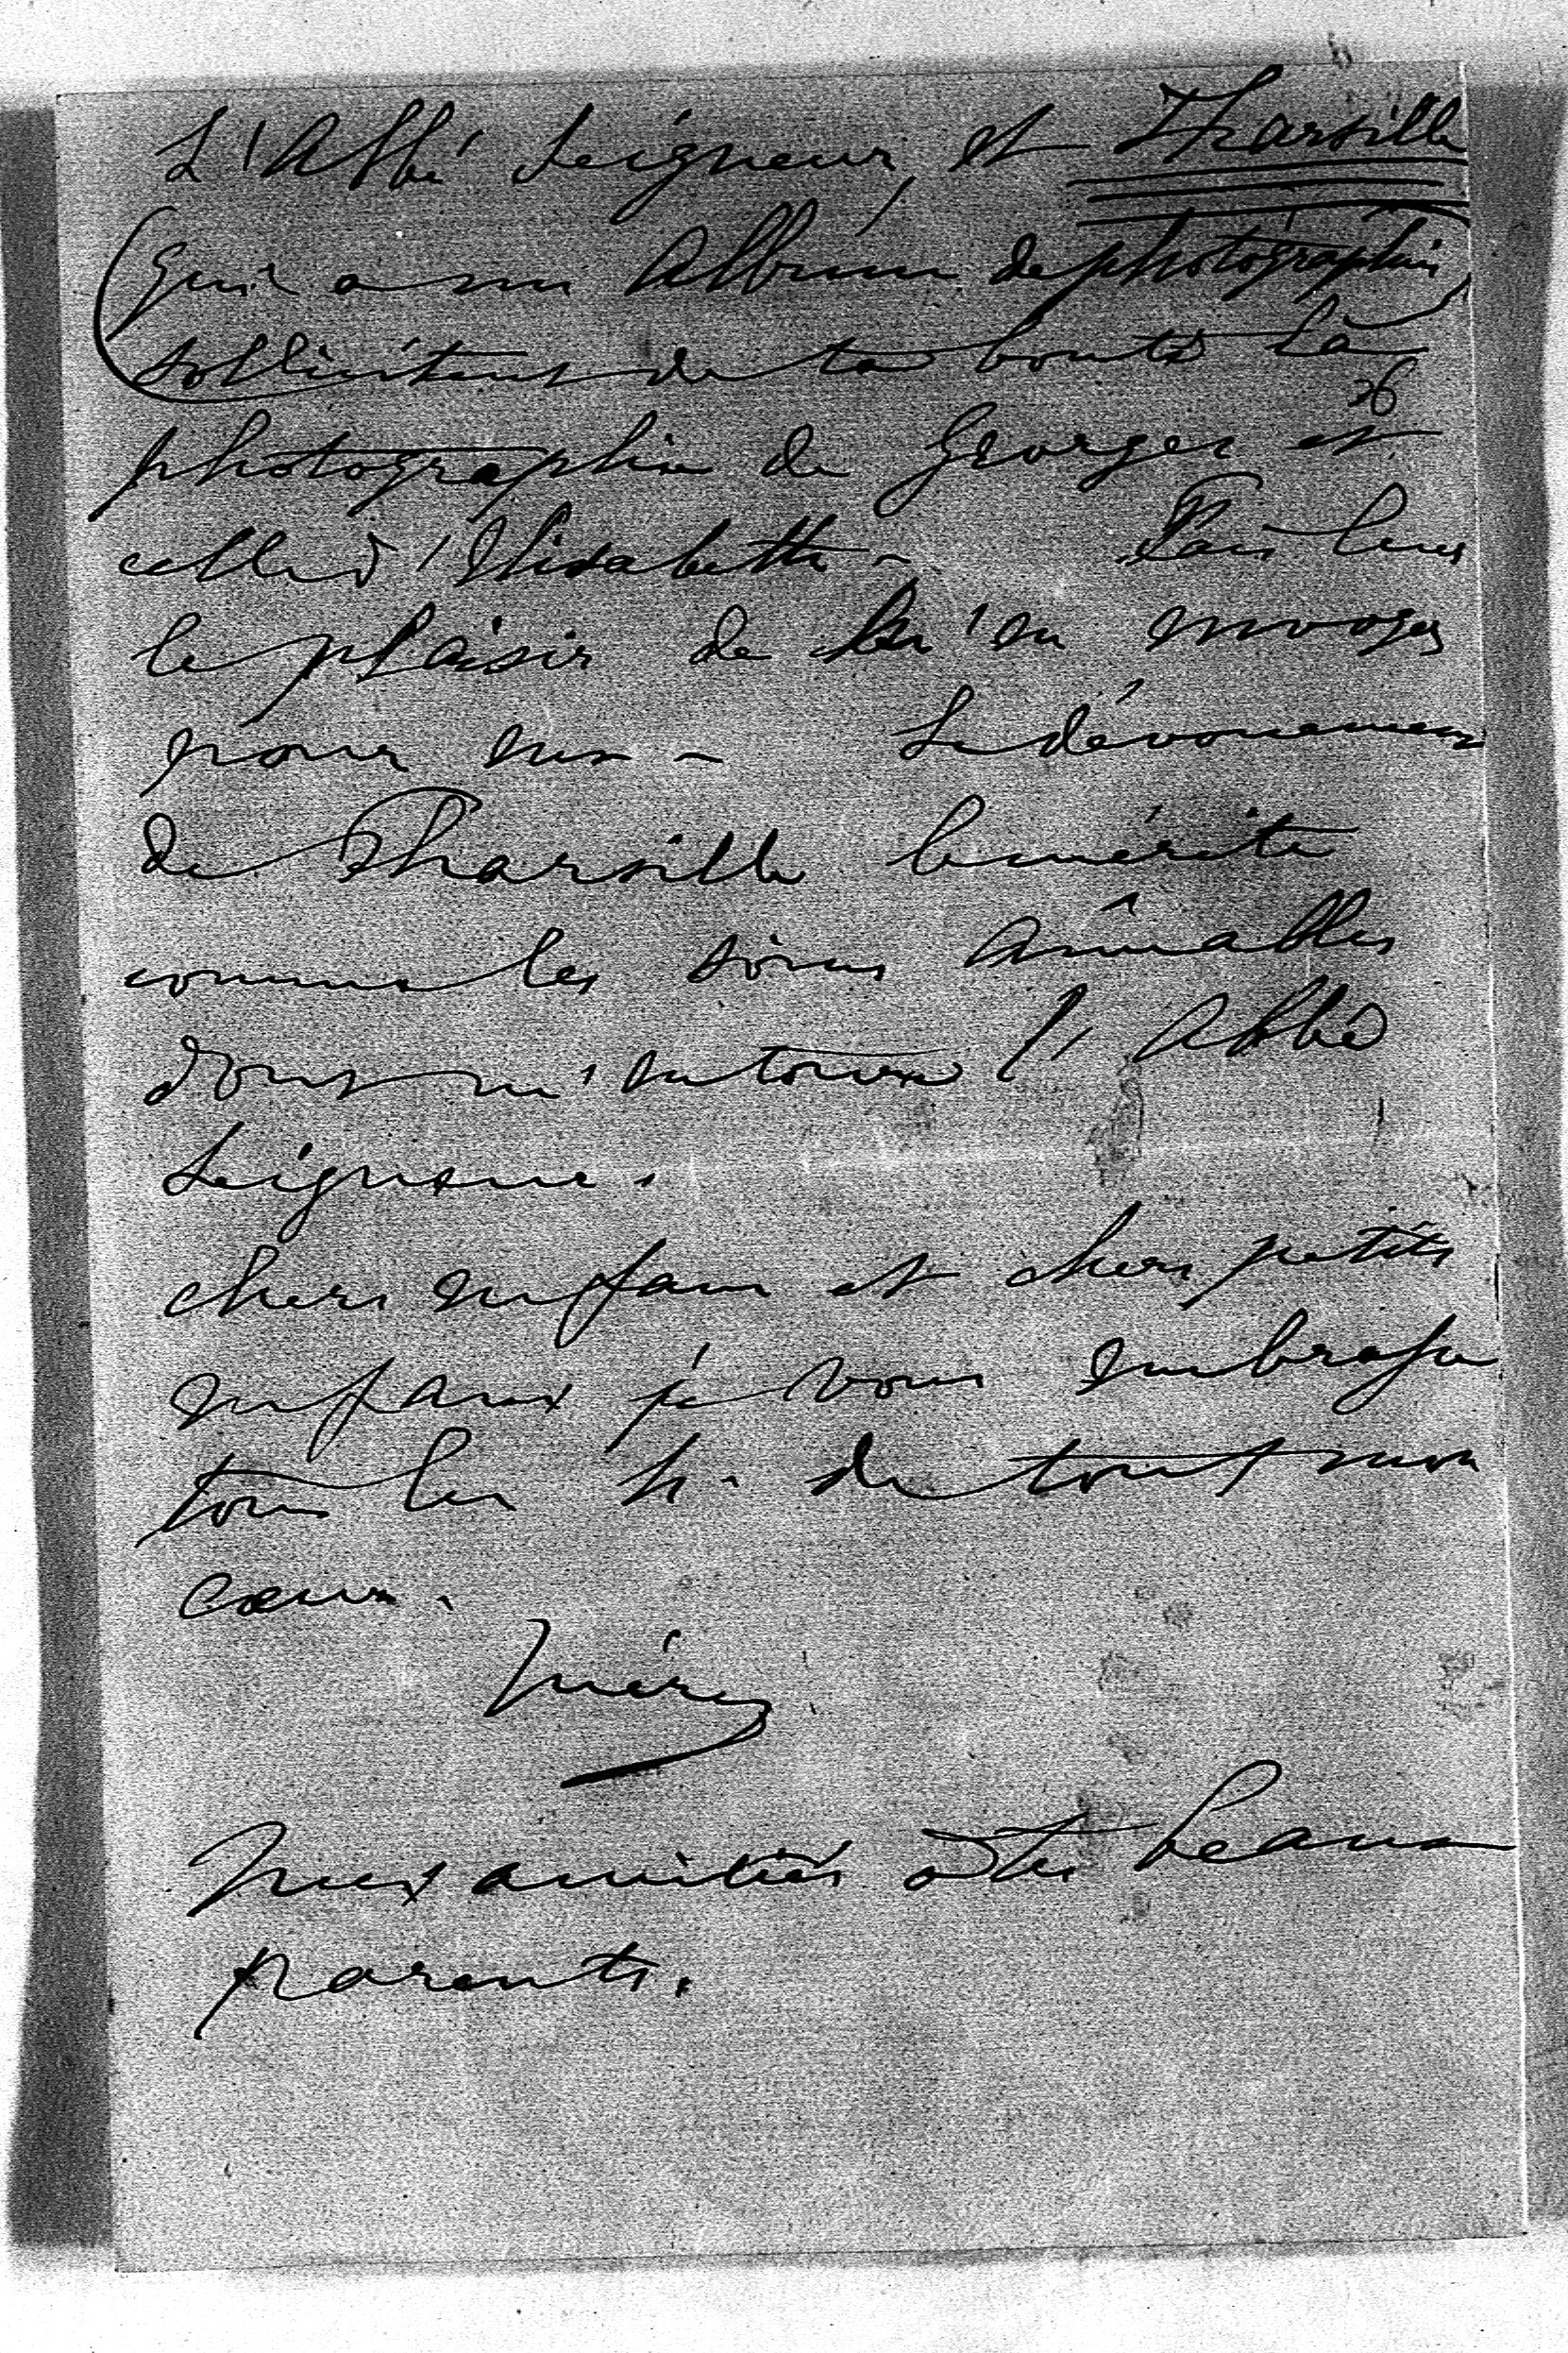 L'Abbé Seigneur, et Tharsille
(qui a un Album de photographies)
sollicitent de ta bonté la
photographie de Georges et
celle d'Elisabeth - Fais leur
le plaisir de m'en envoyer
pour eux - Le dévouement
de Tharsille le mérite
comme les soins aimables
dont m'entoure l'Abbé
Seigneur.
chers enfans et chers petits
enfans je vous embrasse
tous les h. de tout mon
cœur.
Mère
Mes amitiés à tes beaux
parents.